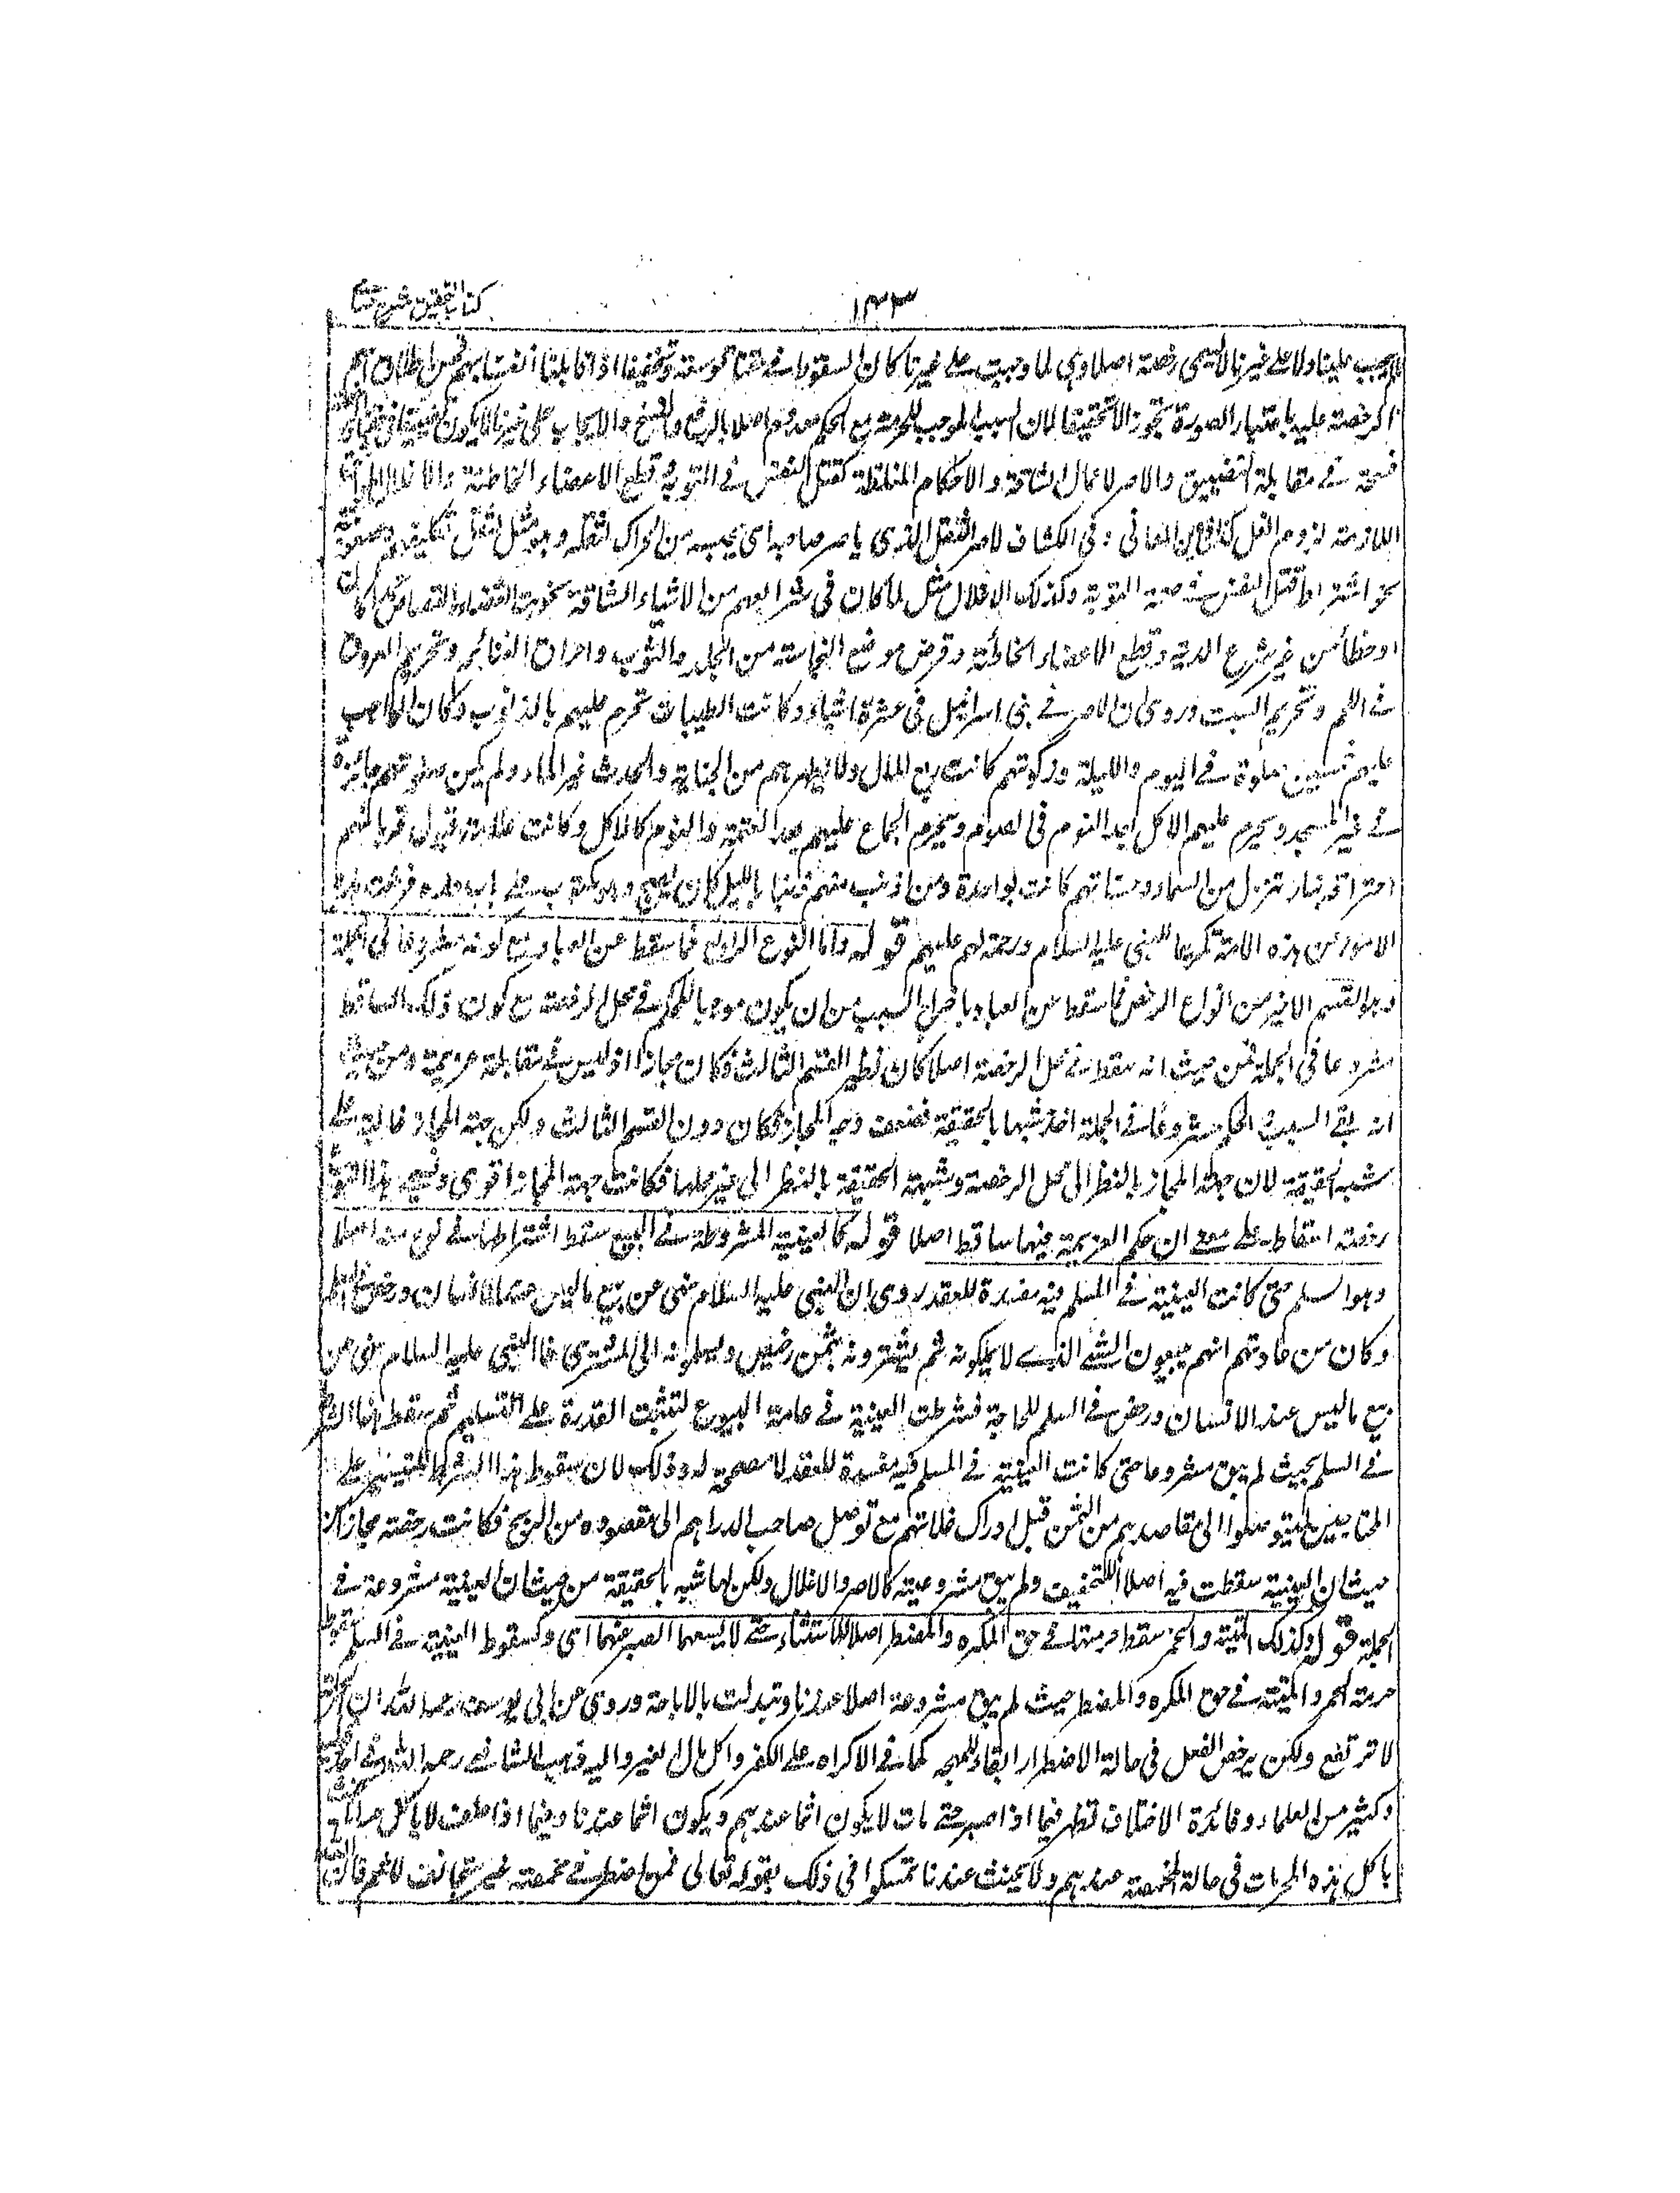 كتاب التحقيق شرح حسامي
١٤٣
لم يجب علينا ولا على غيرنا لا يسمى رخصة اصلا وهي لما وجبت على غيرنا كان السقوط في حقنا توسعة وتخفيفا اذا قابلنا انفسنا بهم فحسن اطلاق اسم
الرخصة عليه باعتبار الصورة تجوزا لا تحقيقا لان السبب الموجب للحرمة مع الحكم معدوم اصلا بالرفع والنسخ والايجاب على غيرنا لا يكون تضييقا في حقنا
فسحة في مقابلة التضييق والاصر الاعمال الشاقة والاحكام المغلظة كقتل النفس في التوبة وقطع الاعضاء الخاطئة والاغلال
اللازمة لزوم الغل كذا في عين المعاني وفي الكشاف الاصر الثقل الذي ياصر صاحبه اي يحبسه من الحراك لثقله وهو مثل لثقل تكليفهم وصعوبته
نحو اشتراط قتل النفس في صحة التوبة وكذلك الاغلال مثل لما كان في شرائعهم من الاشياء الشاقة نحو بت القضاء بالقصاص عمدا كان
او خطأ من غير شرع الدية وقطع الاعضاء الخاطئة وقرض موضع النجاسة من الجلد والثوب واحراق الغنائم وتحريم العروق
في اللحم وتحريم السبت وروي ان الاصر في بني اسرائيل في عشرة اشياء وكانت الطيبات تحرم عليهم بالذنوب وكان الواجب
عليهم خمسين صلوة في اليوم والليلة وزكوتهم كانت ربع المال ولا يطهرهم من الجنابة والحدث غير الماء ولم يكن صلوتهم جائزة
في غير المسجد ويحرم عليهم الاكل بعد النوم في الصوم ويحرم الجماع عليهم بعد العتمة والنوم كالاكل وكانت علامة قبول قربانهم
احتراقه بنار تنزل من السماء وحسناتهم كانت بواحدة ومن اذنب منهم ذنبا بالليل كان يصبح وهو مكتوب على باب داره فرفعت هذه
الامور عن هذه الامة تكريما للنبي عليه السلام ورحمة لهم عليهم قوله واما النوع الرابع فما سقط عن العباد مع كونه مشروعا في الجملة
وهو القسم الاخير من انواع الرخص فما سقط عن العباد باخراج السبب من ان يكون موجبا للحكم في محل الرخصة مع كون ذلك الساقط
مشروعا في الجملة فمن حيث انه سقط في محل الرخصة اصلا كان نظير القسم الثالث فكان مجازا اذ ليس في مقابلته عزيمة ومن حيث
انه بقي السبب والحكم مشروعا في الجملة اخذ شبها بالحقيقة فضعف وجه المجاز فكان دون القسم الثالث ولكن جهة المجاز غالبة على
شبه الحقيقة لان جهة المجاز بالنظر الى محل الرخصة وشبهة الحقيقة بالنظر الى غير محلها فكانت جهة المجاز اقوى وتسمى هذا النوع
رخصة اسقاط على معنى ان حكم العزيمة فيها ساقط اصلا قوله كالعينية المشروطة في البيع سقط اشتراطها في نوع منه اصلا
وهو السلم حتى كانت العينية في المسلم فيه مفسدة للعقد روي ان النبي عليه السلام نهى عن بيع ما ليس عند الانسان ورخص في السلم
وكان من عادتهم انهم يبيعون الشيء الذي لا يملكونه ثم يشترونه بثمن رخيص ويسلمونه الى المشتري فالنبي عليه السلام نهى عن
بيع ما ليس عند الانسان ورخص في السلم للحاجة فشرطت العينية في عامة البيوع لتثبت القدرة على التسليم ثم سقط هذا الشرط
في السلم بحيث لم يبق مشروعا حتى كانت العينية في المسلم فيه مفسدة للعقد لا مصححة له وذلك لان سقوط هذا الشرط للتيسير على
المحتاجين ليتوصلوا الى مقاصدهم من الثمن قبل ادراك غلاتهم مع توصل صاحب الدراهم الى مقصوده من الربح فكانت رخصة مجازا من
حيث ان العينية سقطت فيه اصلا للتخفيف ولم يبق مشروعيته كالاصر والاغلال ولكن لها شبه بالحقيقة من حيث ان العينية مشروعة في
الجملة قوله وكذلك الميتة والخمر سقط حرمتهما في حق المكره والمضطر اصلا للاستثناء حتى لا يسعهما الصبر عنهما اي وكسقوط العينية في السلم سقوط
حرمة الخمر والميتة في حق المكره والمضطر حيث لم يبق مشروعة اصلا عندنا وتبدلت بالاباحة وروي عن ابي يوسف رحمه الله ان الحرمة
لا ترتفع ولكن يرخص الفعل في حالة الاضطرار ابقاء للمهجة كما في الاكراه على الكفر واكل مال الغير واليه ذهب الشافعي رحمه الله في احد قوليه
وكثير من العلماء وفائدة الاختلاف تظهر فيما اذا صبر حتى مات لا يكون اثما عندهم ويكون اثما عندنا وفيما اذا حلف لا ياكل حراما
باكل هذه المحرمات في حالة المخمصة عندهم ولا يحنث عندنا تمسكوا في ذلك بقوله تعالى فمن اضطر في مخمصة غير متجانف لاثم فان الله